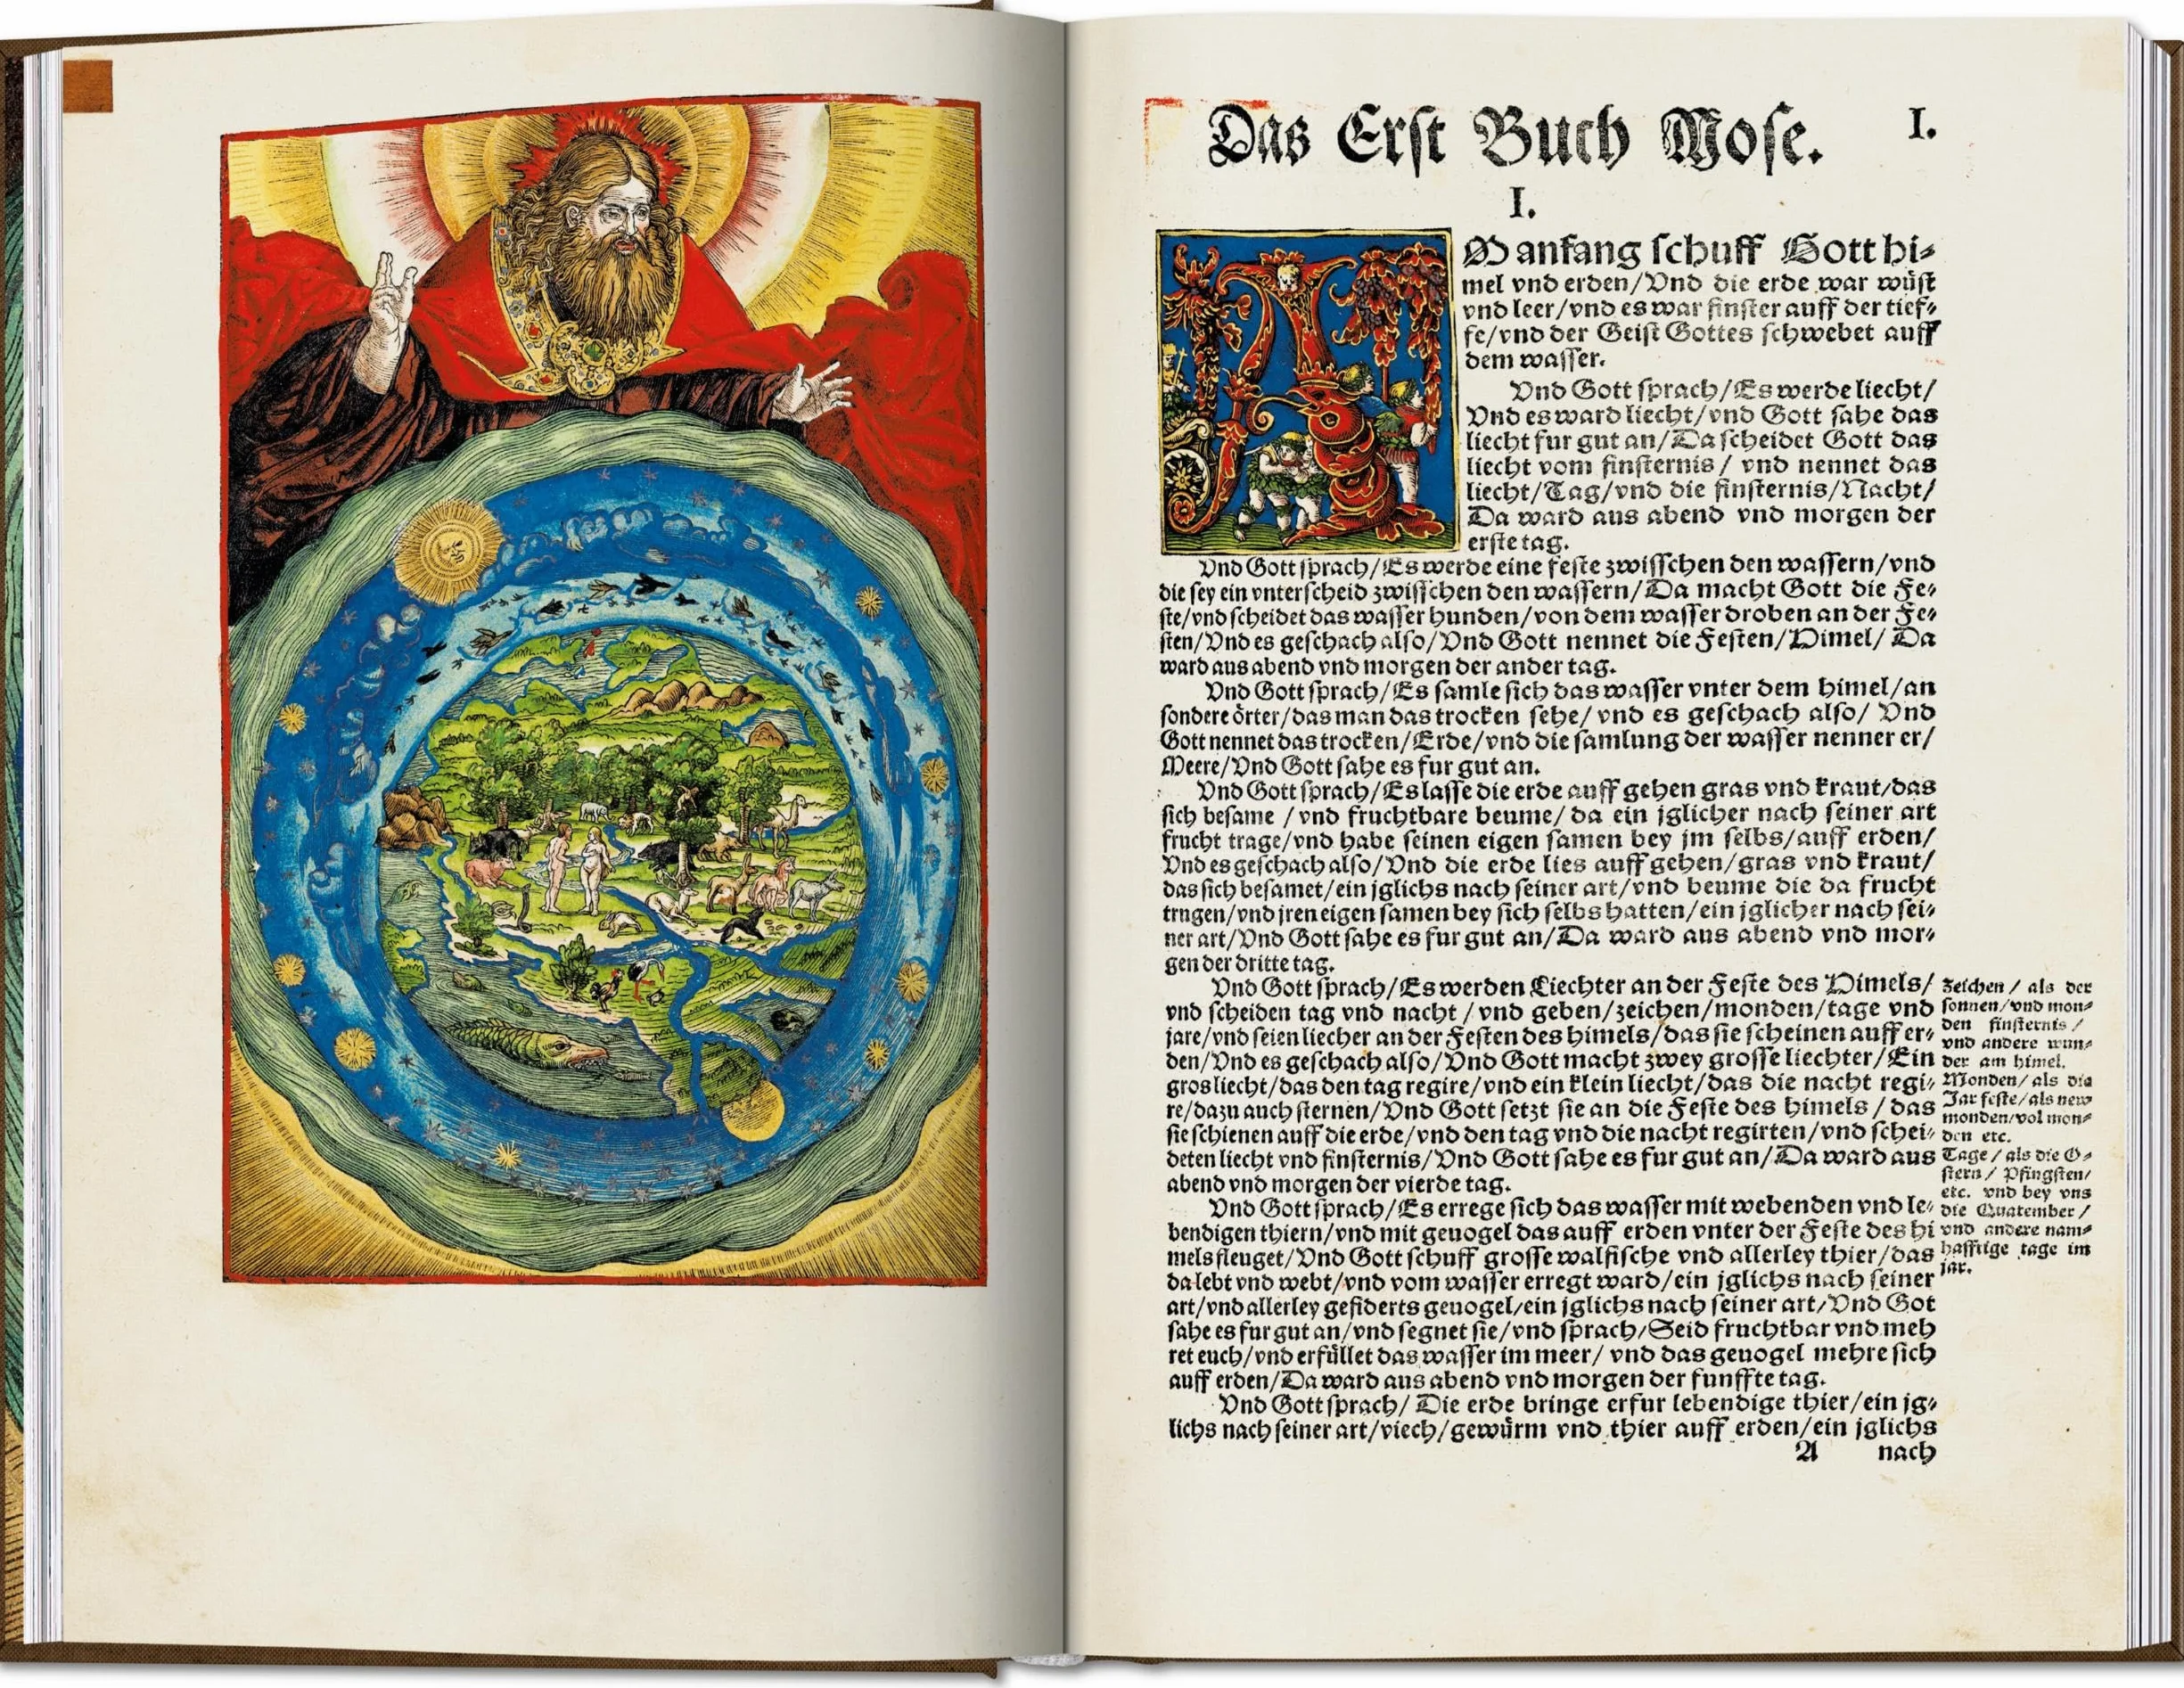 Das Erſt Buch Moſe.
I.
I.
AM anfang ſchuff Gott hi⸗
mel vnd erden/Vnd die erde war wüſt
vnd leer/vnd es war finſter auff der tief⸗
fe/vnd der Geiſt Gottes ſchwebet auff
dem waſſer.
Vnd Gott ſprach/Es werde liecht/
Vnd es ward liecht/vnd Gott ſahe das
liecht fur gut an/Da ſcheidet Gott das
liecht vom finſternis/ vnd nennet das
liecht/Tag/vnd die finſternis/Nacht/
Da ward aus abend vnd morgen der
erſte tag.
Vnd Gott ſprach/Es werde eine feſte zwiſſchen den waſſern/vnd
die ſey ein vnterſcheid zwiſſchen den waſſern/Da macht Gott die Fe⸗
ſte/vnd ſcheidet das waſſer hunden/von dem waſſer droben an der Fe⸗
ſten/Vnd es geſchach alſo/Vnd Gott nennet die Feſten/Himel/ Da
ward aus abend vnd morgen der ander tag.
Vnd Gott ſprach/Es ſamle ſich das waſſer vnter dem himel/an
ſondere örter/das man das trocken ſehe/ vnd es geſchach alſo/ Vnd
Gott nennet das trocken/Erde/vnd die ſamlung der waſſer nenner er/
Meere/Vnd Gott ſahe es fur gut an.
Vnd Gott ſprach/Es laſſe die erde auff gehen gras vnd kraut/das
ſich beſame /vnd fruchtbare beume/ da ein jglicher nach ſeiner art
frucht trage/vnd habe ſeinen eigen ſamen bey jm ſelbs/auff erden/
Vnd es geſchach alſo/Vnd die erde lies auff gehen/gras vnd kraut/
das ſich beſamet/ein jglichs nach ſeiner art/vnd beume die da frucht
trugen/vnd jren eigen ſamen bey ſich ſelbs hatten/ein jglicher nach ſei⸗
ner art/Vnd Gott ſahe es fur gut an/Da ward aus abend vnd mor⸗
gen der dritte tag.
Vnd Gott ſprach/Es werden Liechter an der Feſte des Himels/
vnd ſcheiden tag vnd nacht /vnd geben/zeichen/monden/tage vnd
jare/vnd ſeien liecher an der Feſten des himels/das ſie ſcheinen auff er⸗
den/Vnd es geſchach alſo/Vnd Gott macht zwey groſſe liechter/Ein
gros liecht/das den tag regire/vnd ein klein liecht/das die nacht regi⸗
re/dazu auch ſternen/Vnd Gott ſetzt ſie an die Feſte des himels /das
ſie ſchienen auff die erde/vnd den tag vnd die nacht regirten/vnd ſchei⸗
deten liecht vnd finſternis/Vnd Gott ſahe es fur gut an/Da ward aus
abend vnd morgen der vierde tag.
Vnd Gott ſprach/Es errege ſich das waſſer mit webenden vnd le⸗
bendigen thiern/vnd mit geuogel das auff erden vnter der Feſte des hi
mels fleuget/Vnd Gott ſchuff groſſe walfiſche vnd allerley thier/das
da lebt vnd webt/vnd vom waſſer erregt ward/ein jglichs nach ſeiner
art/vnd allerley gefiderts geuogel/ein jglichs nach ſeiner art/Vnd Got
ſahe es fur gut an/vnd ſegnet ſie/vnd ſprach/Seid fruchtbar vnd meh
ret euch/vnd erfüllet das waſſer im meer/ vnd das geuogel mehre ſich
auff erden/Da ward aus abend vnd morgen der funffte tag.
Vnd Gott ſprach/ Die erde bringe erfur lebendige thier/ein jg⸗
lichs nach ſeiner art/viech/gewürm vnd thier auff erden/ein jglichs
A nach
Zeichen/ als der
ſonnen/vnd mon⸗
den finſternis/
vnd andere wun⸗
der am himel.
Monden/ als die
Jar feſte/als new
monden/vol mon⸗
den etc.
Tage/ als die O⸗
ſtern/ Pfingſten/
etc. vnd bey vns
die Quatember/
vnd andere nam⸗
hafftige tage im
jar.